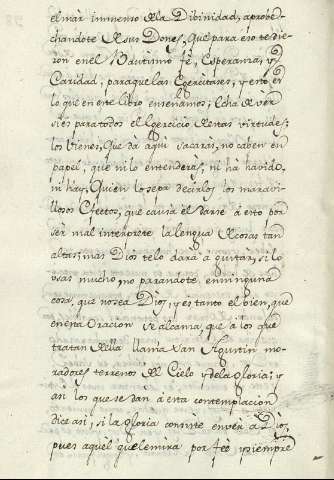 el mar immenso de la Dibinidad, aprobe-
chandote de sus Dones, Que para eso te die-
ron en el Bautismo fè, Esperanza, y
Caridad, paraque las Egercitases, y esto es
lo que en este libro enseñamos; Echa de vèr
si es para todos el Egercicio de estas virtudes;
los vienes, Que dà aqui sacaràs, no caben en
papel, que ni lo entenderas; ni hà havido,
ni hay, Quien lo sepa decir los maravi-
llosos Efectos, que causa el darse à esto por
ser mal interprete la lengua de cosas tan
altas; mas Dios telo darà à gustar, si lo
vsas mucho, no parandote en ninguna
cosa, que no sea Dios, y es tanto el bien, que
en esta Oracion se alcanza, que à los que
tratan de ella llama San Agustin mo-
radores terrenos de el Cielo, y de la Gloria; y
asi los que se dàn à esta contemplacion
dice asi, si la gloria consiste en ver à Dios,
pues aquel que le mira por feè, y siempre